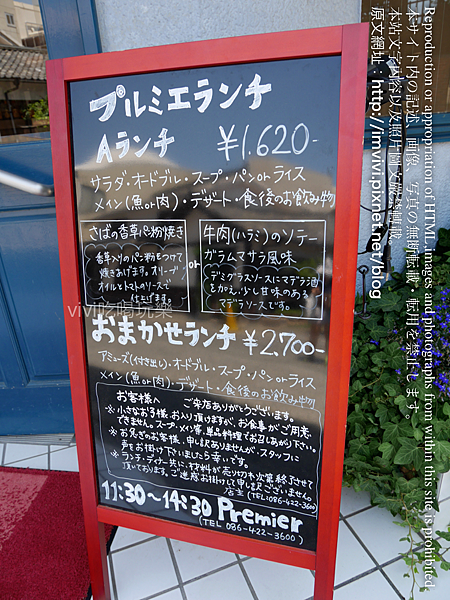 プルミエランチ
Aランチ
¥1.620-
サラダ・オードブル・スープ・パンorライス
メイン(魚or肉)・デザート・食後のお飲み物
さばの香草パン粉焼き
香草入りのパン粉をつけて
焼きあげます。オリーブ
オイルとトマトのソースで
仕上げます。
or
牛肉(ハラミ)のソテー
ガラムマサラ風味
デミグラスソースにマデラ酒
をかえ、少し甘味のある
マデラソースです。
おまかせランチ ¥2.700-
アミューズ(付き出し)・オードブル・スープ・パンorライス
メイン(魚or肉)・デザート・食後のお飲み物
お客様へ ご来店ありがとうございます。
※小さなお子様、お入り頂けますが、お食事がご用意
できません。スープ・メイン等、単品料理でお召しあがり下さい。
※お急ぎのお客様、申し訳ありませんが、スタッフに
声をお掛け下さいましたら幸いです。
※ランチ・ディナー共に、材料が売り切れ次第終了させて
頂いております。ご迷惑お掛けして申し訳ございません
店主(TEL:086-422-3600)
11:30〜14:30 Premier
(TEL 086-422-3600)
Reproduction or appropriation of HTML, images and photographs from within this site is prohibited.
本サイト内の記述、画像、写真の無断転載、転用を禁止します
本站文字內容以及照片圖文嚴禁轉載。
原文網址：http://imvivi.pixnet.net/blog
vivi吃喝玩樂